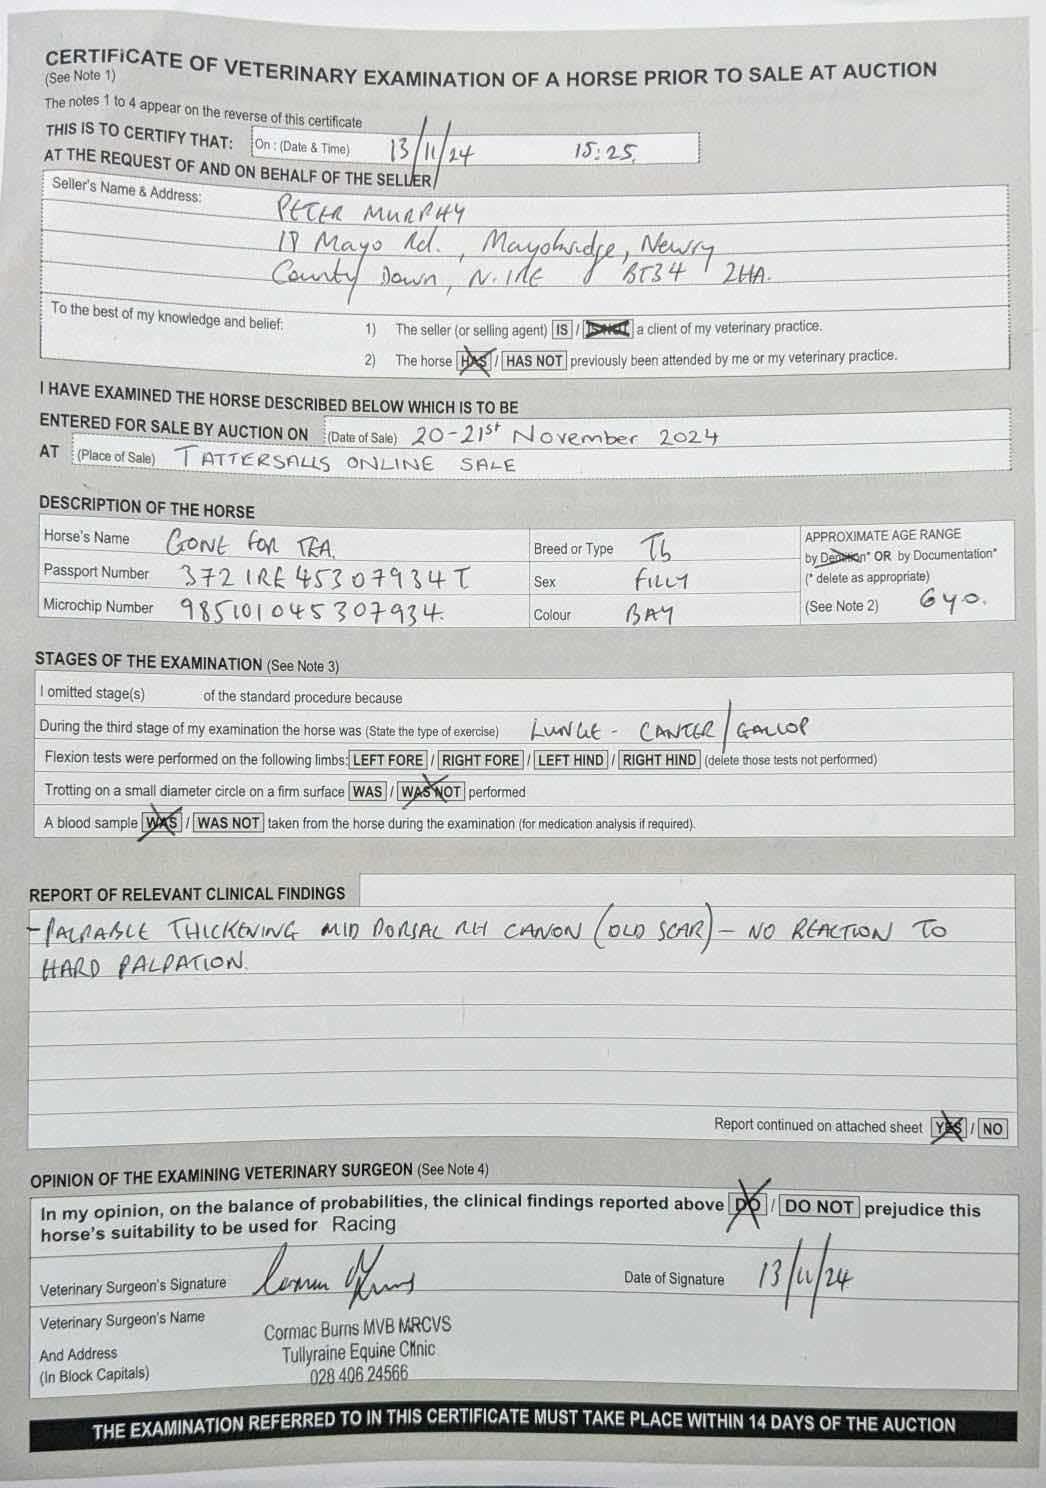 CERTIFICATE OF VETERINARY EXAMINATION OF A HORSE PRIOR TO SALE AT AUCTION
(See Note 1)
The notes 1 to 4 appear on the reverse of this certificate
THIS IS TO CERTIFY THAT: On : (Date & Time) 13/11/24 15:25.
AT THE REQUEST OF AND ON BEHALF OF THE SELLER
Seller's Name & Address: PETER MURPHY
18 Mayo Rd., Mayobridge, Newry
County Down, N.IRE BT34 2HA.
To the best of my knowledge and belief: 1) The seller (or selling agent) IS / IS NOT a client of my veterinary practice.
2) The horse HAS / HAS NOT previously been attended by me or my veterinary practice.
I HAVE EXAMINED THE HORSE DESCRIBED BELOW WHICH IS TO BE
ENTERED FOR SALE BY AUCTION ON (Date of Sale) 20-21st November 2024
AT (Place of Sale) TATTERSALLS ONLINE SALE
DESCRIPTION OF THE HORSE
Horse's Name GONE FOR TEA. Breed or Type Tb APPROXIMATE AGE RANGE
by Dentition* OR by Documentation*
Passport Number 372 IRE 45307934T Sex FILLY (* delete as appropriate)
Microchip Number 985101045307934. Colour BAY (See Note 2) 6yo.
STAGES OF THE EXAMINATION (See Note 3)
I omitted stage(s) of the standard procedure because
During the third stage of my examination the horse was (State the type of exercise) LUNGE - CANTER/GALLOP
Flexion tests were performed on the following limbs: LEFT FORE / RIGHT FORE / LEFT HIND / RIGHT HIND (delete those tests not performed)
Trotting on a small diameter circle on a firm surface WAS / WAS NOT performed
A blood sample WAS / WAS NOT taken from the horse during the examination (for medication analysis if required).
REPORT OF RELEVANT CLINICAL FINDINGS
- PALPABLE THICKENING MID DORSAL RH CANON (OLD SCAR) - NO REACTION TO
HARD PALPATION.
Report continued on attached sheet YES / NO
OPINION OF THE EXAMINING VETERINARY SURGEON (See Note 4)
In my opinion, on the balance of probabilities, the clinical findings reported above DO / DO NOT prejudice this
horse's suitability to be used for Racing
Veterinary Surgeon's Signature Date of Signature 13/11/24
Veterinary Surgeon's Name
Cormac Burns MVB MRCVS
And Address Tullyraine Equine Clinic
(In Block Capitals) 028 406 24566
THE EXAMINATION REFERRED TO IN THIS CERTIFICATE MUST TAKE PLACE WITHIN 14 DAYS OF THE AUCTION